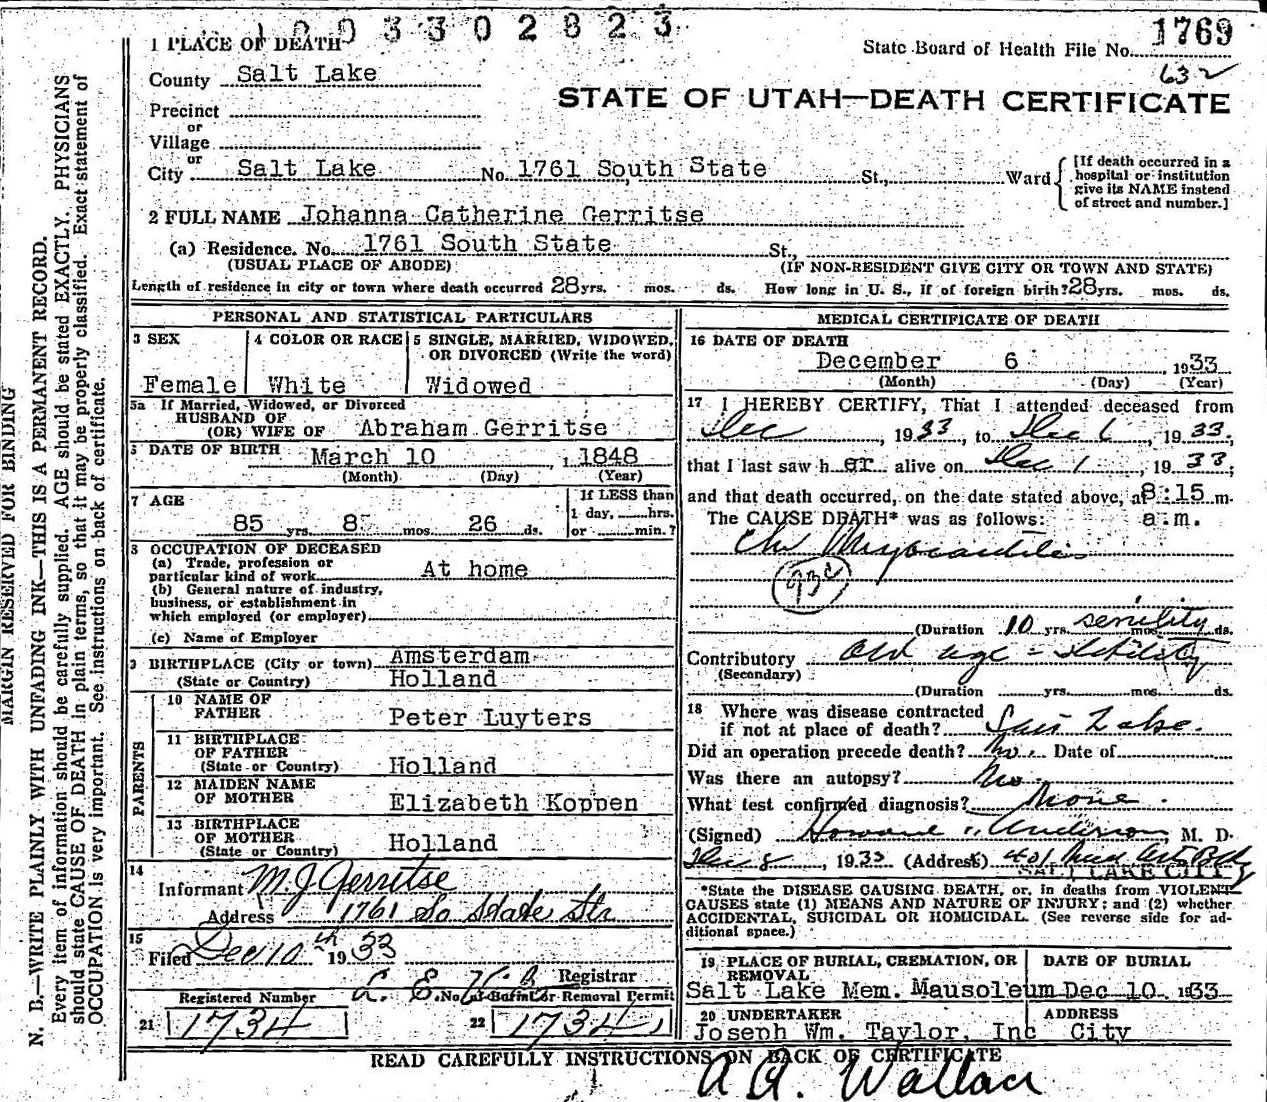 1 0 0 3 3 0 2 8 2 3
1769
1 PLACE OF DEATH
State Board of Health File No.
632
County Salt Lake
STATE OF UTAH—DEATH CERTIFICATE
Precinct
or
Village
or
City Salt Lake No. 1761 South State St., Ward
[If death occurred in a
hospital or institution
give its NAME instead
of street and number.]
2 FULL NAME Johanna Catherine Gerritse
(a) Residence. No. 1761 South State St.,
(USUAL PLACE OF ABODE) (IF NON-RESIDENT GIVE CITY OR TOWN AND STATE)
Length of residence in city or town where death occurred 28 yrs. mos. ds. How long in U. S., if of foreign birth? 28 yrs. mos. ds.
PERSONAL AND STATISTICAL PARTICULARS
3 SEX 4 COLOR OR RACE 5 SINGLE, MARRIED, WIDOWED,
OR DIVORCED (Write the word)
Female White Widowed
5a If Married, Widowed, or Divorced
HUSBAND OF
(OR) WIFE OF Abraham Gerritse
DATE OF BIRTH
March 10, 1848
(Month) (Day) (Year)
7 AGE
If LESS than
1 day, hrs.
85 yrs. 8 mos. 26 ds. or min.?
8 OCCUPATION OF DECEASED
(a) Trade, profession or
particular kind of work At home
(b) General nature of industry,
business, or establishment in
which employed (or employer)
(c) Name of Employer
9 BIRTHPLACE (City or town) Amsterdam
(State or Country) Holland
PARENTS
10 NAME OF
FATHER Peter Luyters
11 BIRTHPLACE
OF FATHER
(State or Country) Holland
12 MAIDEN NAME
OF MOTHER Elizabeth Koppen
13 BIRTHPLACE
OF MOTHER
(State or Country) Holland
14
Informant M. J. Gerritse
Address 1761 So State Str
15
Filed Dec 10th 1933
Registrar
Registered Number No. of Burial or Removal Permit
21 1734 22 1734
MEDICAL CERTIFICATE OF DEATH
16 DATE OF DEATH
December 6, 1933
(Month) (Day) (Year)
17 I HEREBY CERTIFY, That I attended deceased from
Dec, 1933, to Dec 6, 1933,
that I last saw h er alive on Dec 1, 1933,
and that death occurred, on the date stated above, at 8:15 m.
The CAUSE DEATH* was as follows: a.m.
Chr Myocarditis
93c
(Duration 10 yrs. mos. ds.
senility
Contributory Old age
(Secondary)
(Duration yrs. mos. ds.
18 Where was disease contracted
if not at place of death? Salt Lake.
Did an operation precede death? No. Date of
Was there an autopsy? No.
What test confirmed diagnosis? None.
(Signed) Anderson, M. D.
Dec 8, 1933 (Address) 401 Med Arts Bldg
SALT LAKE CITY
*State the DISEASE CAUSING DEATH, or, in deaths from VIOLENT
CAUSES state (1) MEANS AND NATURE OF INJURY; and (2) whether
ACCIDENTAL, SUICIDAL OR HOMICIDAL. (See reverse side for ad-
ditional space.)
19 PLACE OF BURIAL, CREMATION, OR
REMOVAL DATE OF BURIAL
Salt Lake Mem. Mausoleum Dec 10 1933
20 UNDERTAKER ADDRESS
Joseph Wm. Taylor, Inc City
READ CAREFULLY INSTRUCTIONS ON BACK OF CERTIFICATE
A. A. Wallace
MARGIN RESERVED FOR BINDING
N. B.—WRITE PLAINLY WITH UNFADING INK—THIS IS A PERMANENT RECORD.
Every item of information should be carefully supplied. AGE should be stated EXACTLY. PHYSICIANS
should state CAUSE OF DEATH in plain terms, so that it may be properly classified. Exact statement of
OCCUPATION is very important. See instructions on back of certificate.